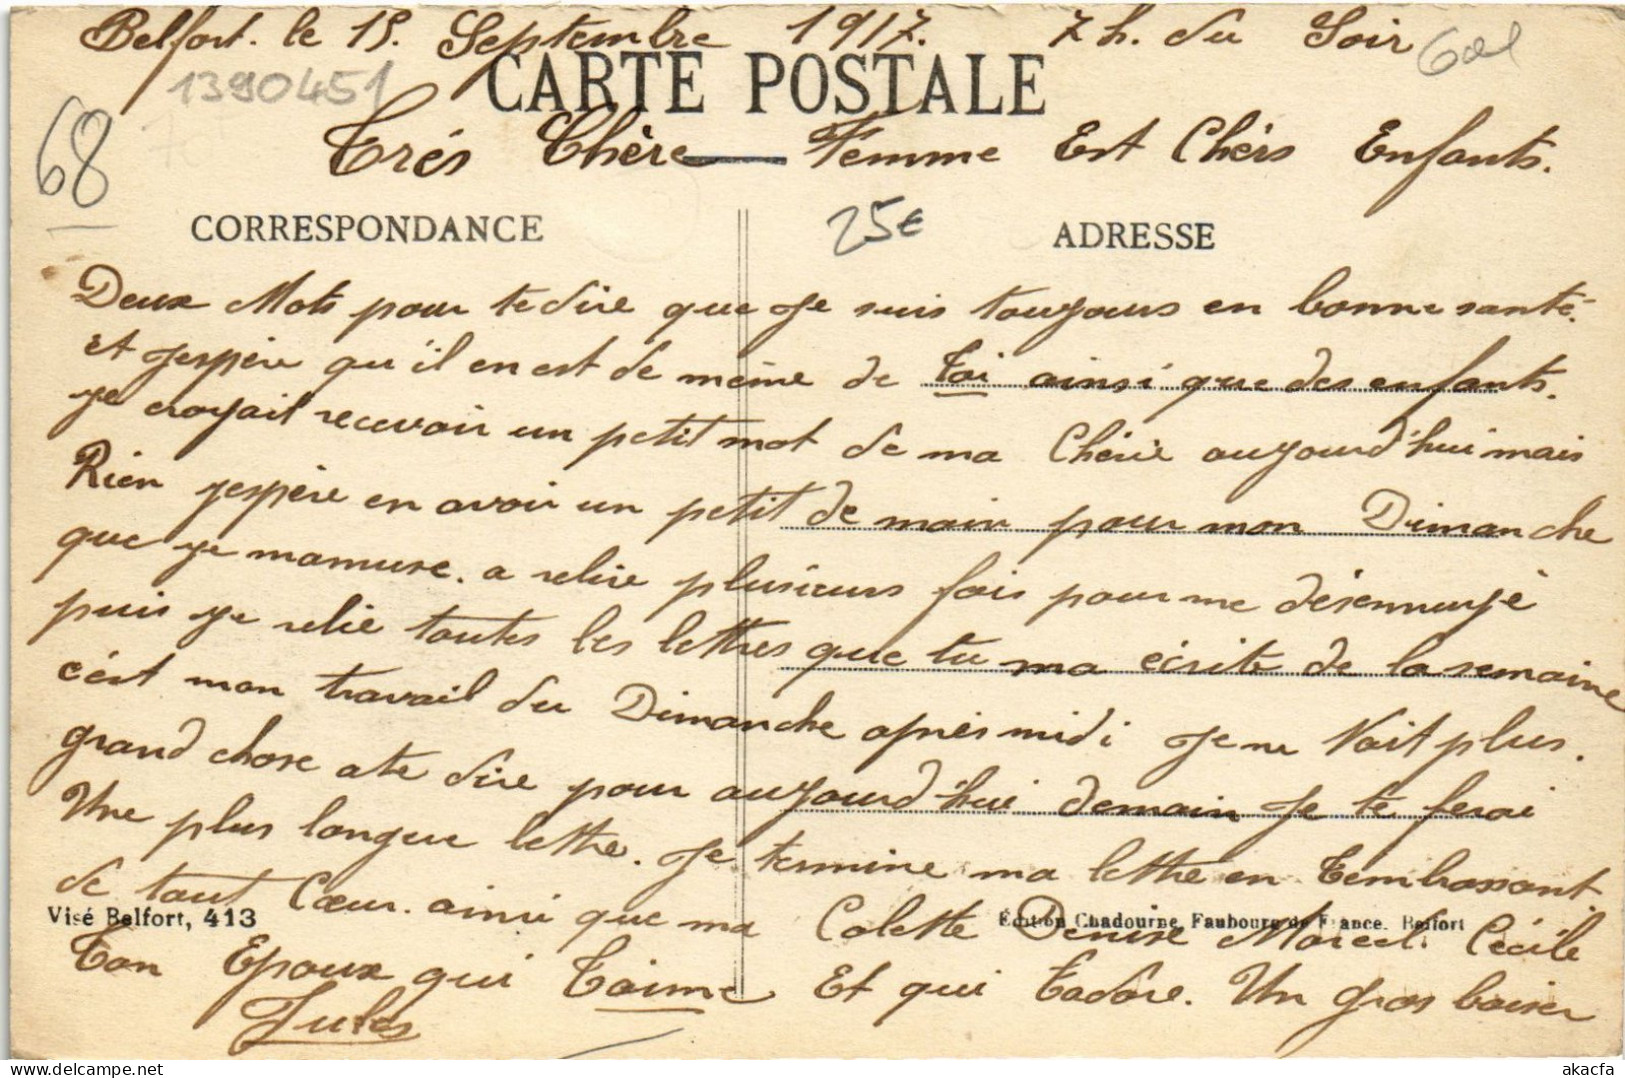 Belfort. le 15. Septembre 1917. 7 h. du Soir
1390451
CARTE POSTALE
68
Trés Chère Femme Est Chèrs Enfants.
25€
CORRESPONDANCE
ADRESSE
Deux Mots pour te dire que Je suis toujours en bonne santé.
et J'espère qu'il en est de même de Toi ainsi que des enfants.
je croyait recevoir un petit mot de ma Chérie aujourd'hui mais
Rien j'espère en avoir un petit demain pour mon Dimanche
que je mamuse. a relire plusieurs fois pour me désennuyé
puis je relie toutes les lettres que tu ma écrite de la semaine
c'est mon travail du Dimanche après midi Je ne Voit plus.
grand chose a te dire pour aujourd'hui demain Je te ferai
Une plus longue lettre. Je termine ma lettre en T'embrassant.
de tout Cœur. ainsi que ma Colette Denise Marcel. Cécile
Visé Belfort, 413
Édition Chadourne, Faubourg de France, Belfort
Ton Epoux qui T'aime Et qui T'adore. Un Gros baiser
Jules
akacfa